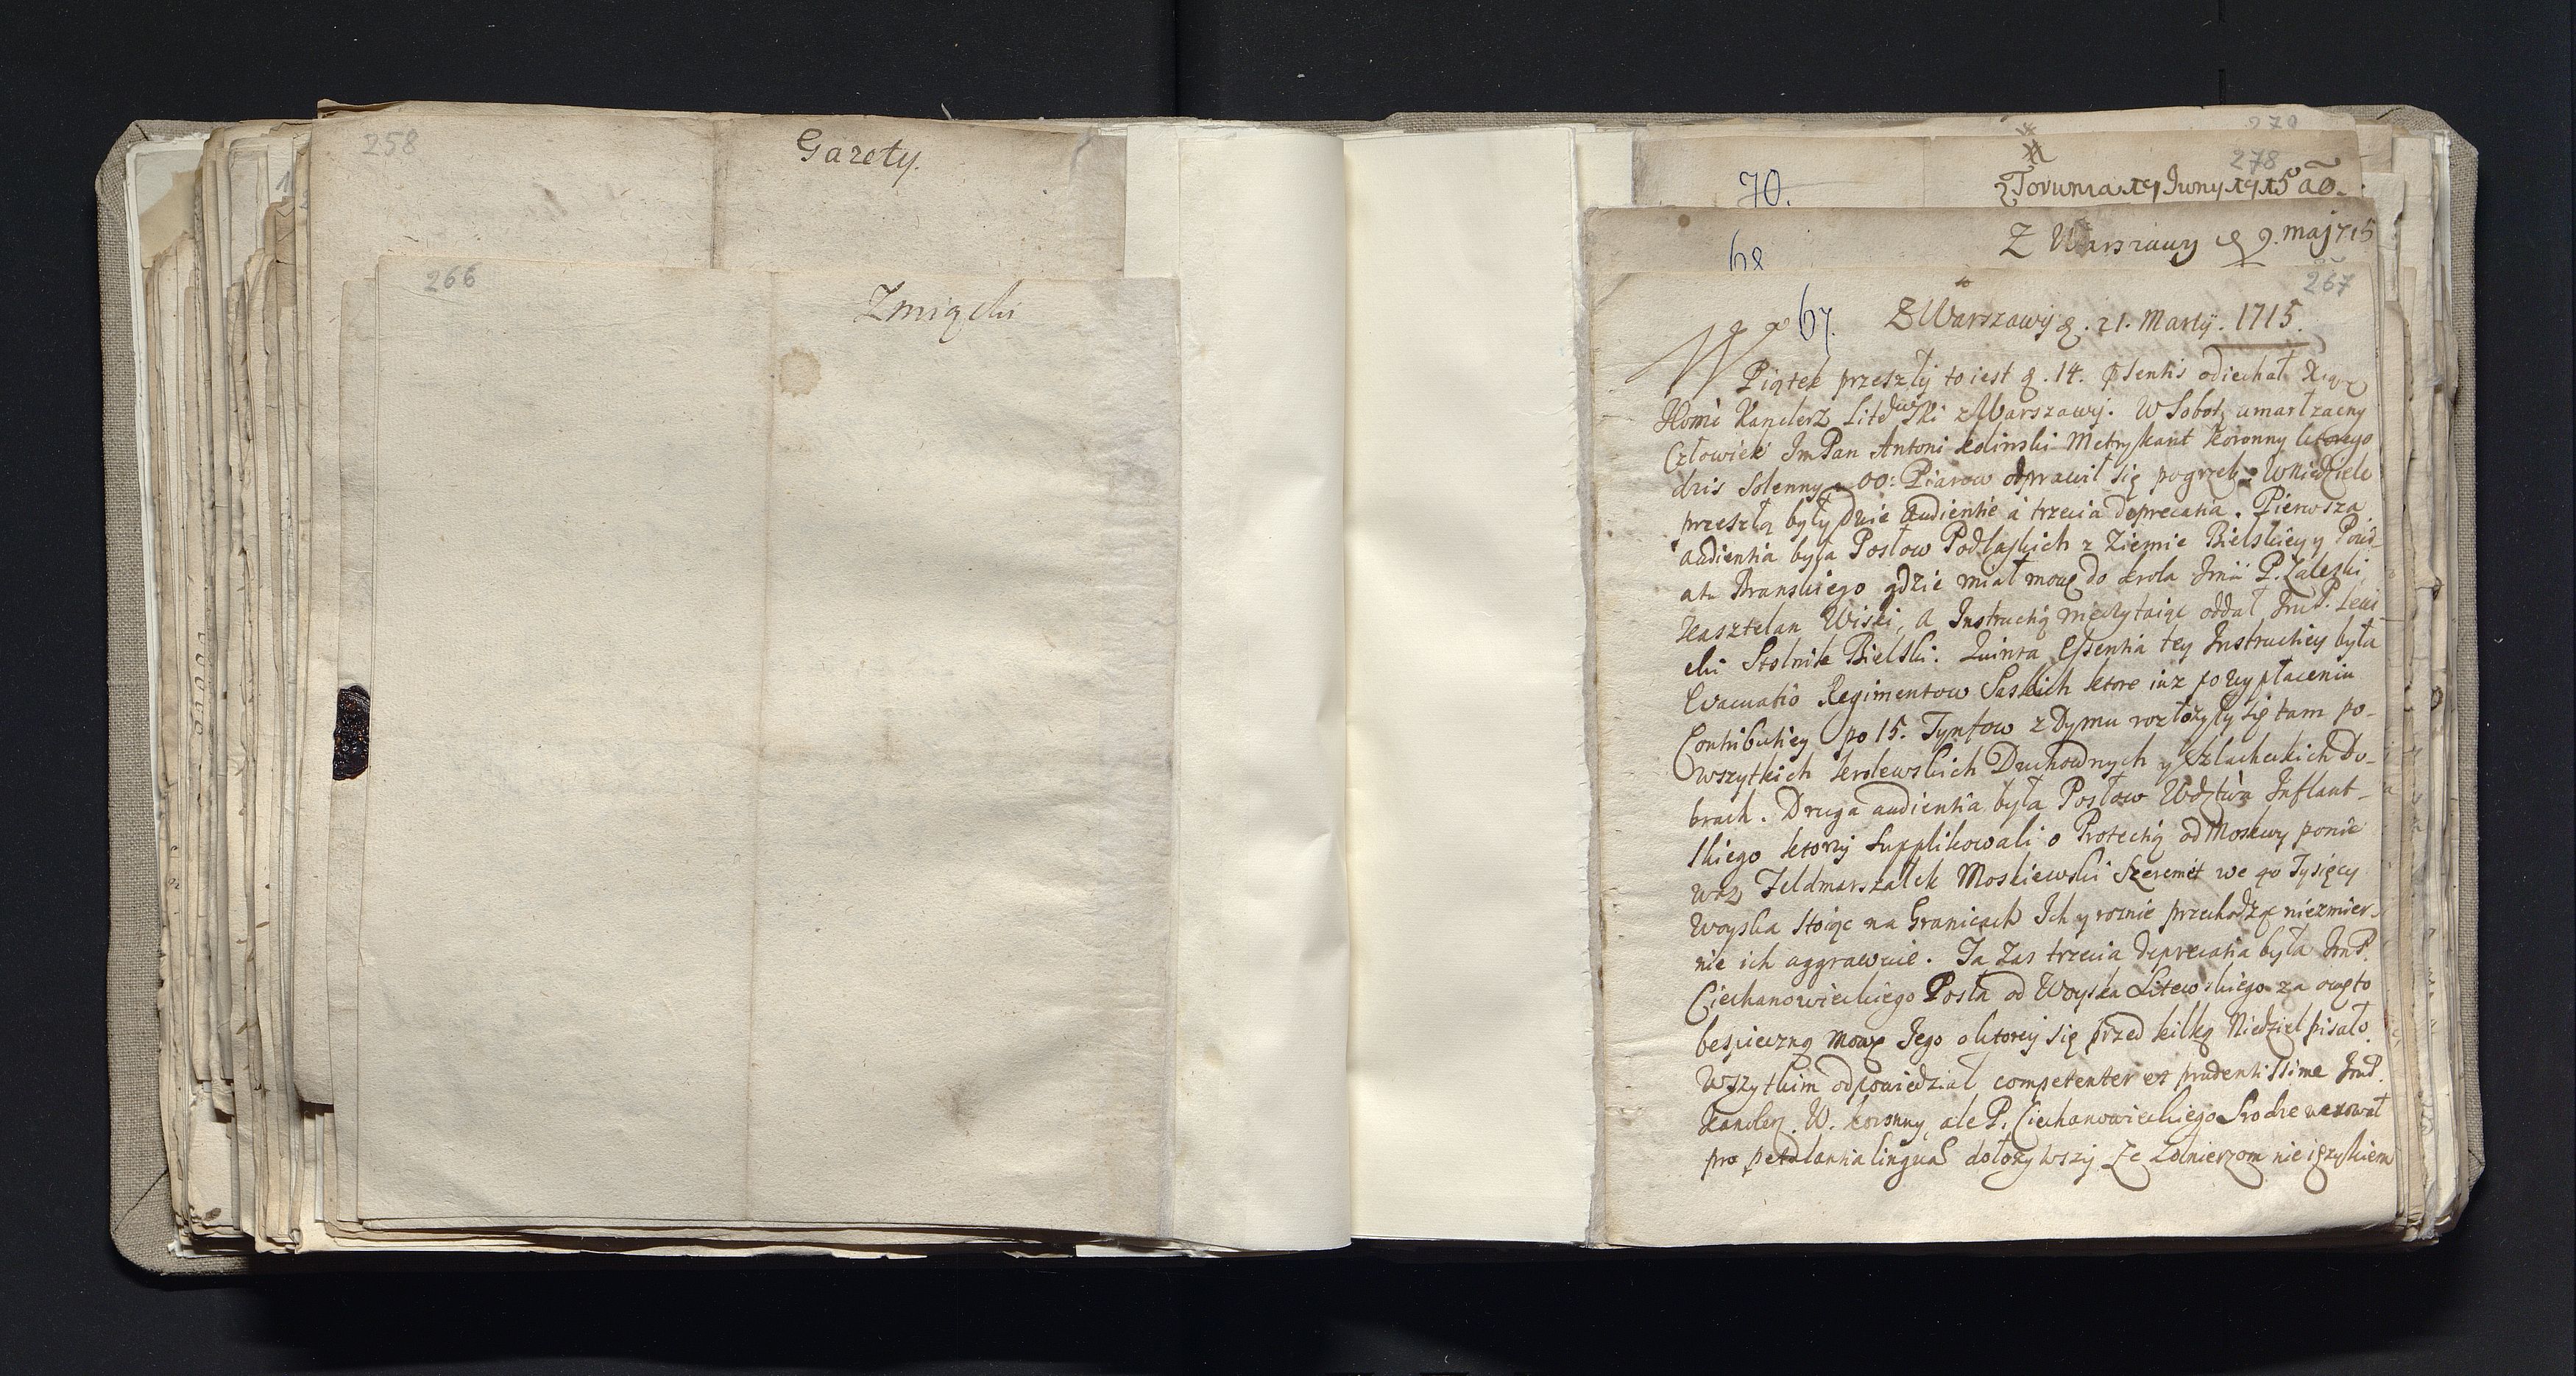 258
Gazety.
266
Zmiącki
279
278
70.
z Torunia 19 Juny 1715 ao.
Z Warszawy d 9. maj 715
68
267
67.
Z Warszawy d. 21. Martij. 1715.
W Piątek przeszły to iest d. 14. psentis odiechał Xąże
JKomi Kanclerz Litewski z Warszawy. W Sobotę umarł zacny
Człowiek Im Pan Antoni Metrykant Koronny ktorego
dzis Solenny u OO: Piarow odprawił się pogrzeb. W Niedziele
przeszłą były dwie Audientie a trzecia deprecatia. Pierwsza
audientia była Posłow Podlaskich z Ziemie Bielskiey y Powi-
atu Branskiego gdzie miał mowę do krola Jmć P. Zaleski
Kasztelan Wiski, a Instructią nieczytaiąc oddał JmP. Lew
cki Stolnik Bielski. Quinta Essentia tey Instructiey była
Evacuatio Regimentow Saskich ktore iuz po wypłaceniu
Contributiey po 15. Tynfow z Dymu rozłozyły się tam po-
wszytkich krolewskich Duchownych y Szlacheckich Do-
brach. Druga audientia była Posłow Wdztwa Inflant-
skiego ktorzy Supplikowali o Protectią od Moskwy ponie
waz Feldmarszałek Moskiewski Szeremet we 40 Tysięcy
Woyska stoiąc na Granicach Ich y rocznie przechodząc niezmier-
nie ich aggrawuie. Ta zas trzecia deprecatia była JmP.
Ciechanowieckiego Posła od Woyska Litewskiego za owę to
bespieczną mowę Jego o ktorey się przed kilką Niedziel pisało.
Wszytkim odpowiedział competenter et prudentissime JmP.
Kanclerz. W. koronny, ale P. Ciechanowieckiego Srodze wexował
pro petulantia lingua dołozywszy ze zołnierzom nie ięzykiem